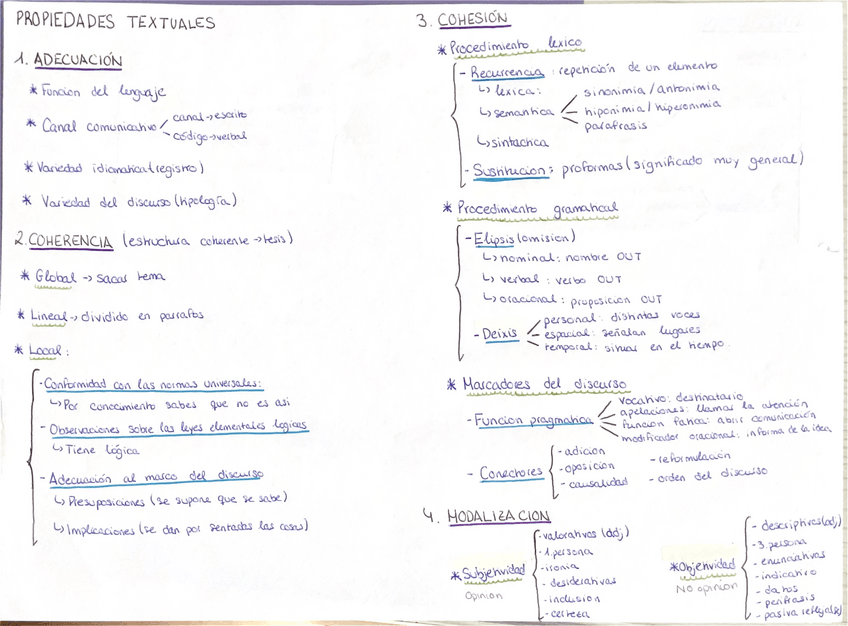 PROPIEDADES TEXTUALES
1. ADECUACIÓN
* Funcion del lenguaje
* Canal comunicativo
canal → escrito
código → verbal
* Variedad idiomatica (registro)
* Variedad del discurso (tipología)
2. COHERENCIA (estructura coherente → tesis)
* Global → sacar tema
* Lineal → dividido en parrafos
* Local:
- Conformidad con las normas universales:
↳ Por conocimiento sabes que no es asi
- Observaciones sobre las leyes elementales logicas
↳ Tiene lógica
- Adecuación al marco del discurso
↳ Presuposiciones (se supone que se sabe)
↳ Implicaciones (se dan por sentadas las cosas)
3. COHESIÓN
* Procedimiento lexico
- Recurrencia: repetición de un elemento
↳ lexica:
↳ semantica
sinonimia / antonimia
hiponimia / hiperonimia
parafrasis
↳ sintactica
- Sustitucion: proformas (significado muy general)
* Procedimiento gramatical
- Elipsis (omision)
↳ nominal: nombre OUT
↳ verbal: verbo OUT
↳ oracional: proposicion OUT
- Deixis
personal: distintas voces
espacial: señalan lugares
temporal: situar en el tiempo.
* Marcadores del discurso
- Funcion pragmatica
vocativo: destinatario
apelaciones: llamar la atención
funcion fatica: abrir comunicación
modificador oracional: informa de la idea
- Conectores
- adicion
- oposicion
- causalidad
- reformulación
- orden del discurso
4. MODALIZACION
* Subjetividad
Opinion
- valorativos (adj)
- 1.persona
- ironia
- desiderativas
- inclusion
- certeza
* Objetividad
NO opinion
- descriptivos (adj)
- 3.persona
- enunciativas
- indicativo
- datos
- perifrasis
- pasiva refleja (se)